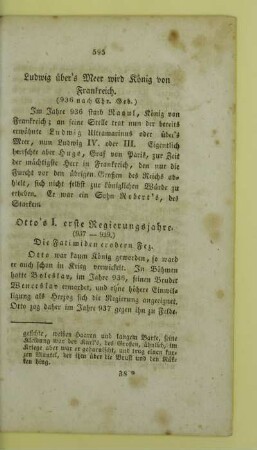 595
Ludwig über's Meer wird König von
Frankreich.
(936 nach Chr. Geb.)
Im Jahre 936 starb Raoul, König von
Frankreich; an seine Stelle trat nun der bereits
erwähnte Ludwig Ultramarinus oder über's
Meer, nun Ludwig IV. oder III. Eigentlich
herrschte aber Hugo, Graf von Paris, zur Zeit
der mächtigste Herr in Frankreich, den nur die
Furcht vor den übrigen Großen des Reichs ab
hielt, sich nicht selbst zur königlichen Würde zu
erheben. Er war ein Sohn Robert's, des
Starken.
Otto's I. erste Regierungsjahre.
(937 — 939.)
Die Fatimiden erobern Fez.
Otto war kaum König geworden, so ward
er auch schon in Krieg verwickelt. In Böhmen
hatte Boleslav, im Jahre 936, seinen Bruder
Wenceslav ermordet, und ohne höhere Einwil-
ligung als Herzog sich die Regierung angeeignet.
Otto zog daher im Jahre 937 gegen ihn zu Felde.
gesichte, weißen Haaren und langem Barte, seine
Kleidung war der Karl's, des Großen, ähnlich, im
Kriege aber war er geharnischt, und trug einen kur-
zen Mantel, der ihm über die Brust und den Rük-
ken hing.
38 *